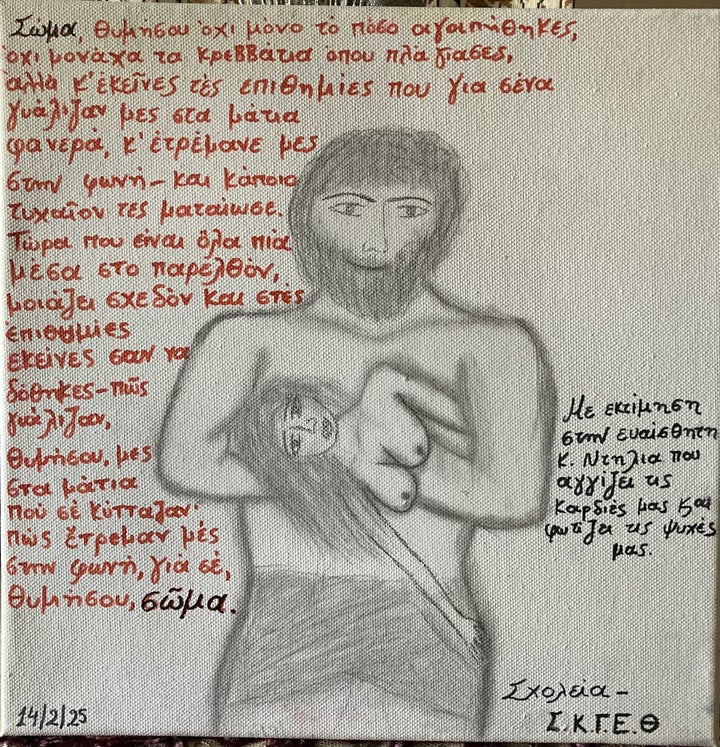 Σῶμα, θυμήσου ὄχι μόνο τὸ πόσο ἀγαπήθηκες,
ὄχι μονάχα τα κρεββάτια ὅπου πλάγιασες,
ἀλλὰ κ' ἐκεῖνες τὲς επιθημίες που για σένα
γυάλιζαν μες στα μάτια
φανερά, κ' ἐτρέμανε μες
στην φωνή - και κάποιο
τυχαῖον τες ματαίωσε.
Τώρα που είναι ὅλα πιὰ
μέσα στο παρελθόν,
μοιάζει σχεδὸν και στὲς
ἐπιθυμίες
εκείνες σαν να
δόθηκες - πῶς
γυάλιζαν,
θυμήσου, μες
στα μάτια
ποὺ σὲ κύτταζαν·
πῶς ἔτρεμαν μές
στην φωνή, γιὰ σέ,
θυμήσου, σῶμα.
Με εκτίμηση
στην ευαίσθητη
κ. Ντηλια που
αγγίζει τις
καρδιές μας και
φωτίζει τις ψυχές
μας.
Σχολεία -
Σ.Κ.Γ.Ε.Θ
14/2/25